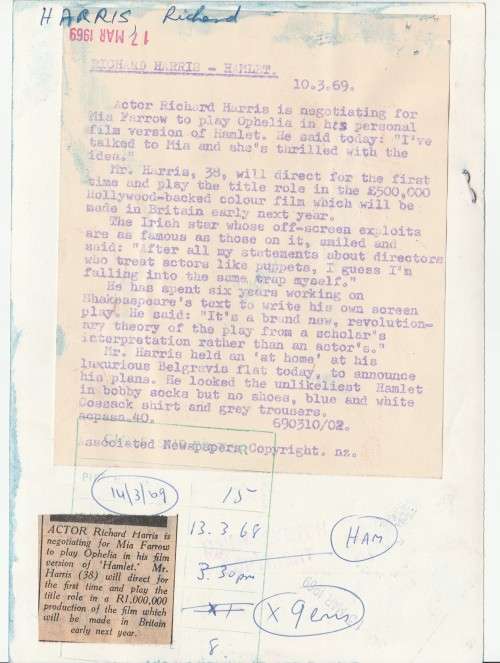 HARRIS Richard
17 MAR 1969
RICHARD HARRIS - HAMLET.
10.3.69.
Actor Richard Harris is negotiating for
Mia Farrow to play Ophelia in his personal
film version of Hamlet. He said today: "I've
talked to Mia and she's thrilled with the
idea."
Mr. Harris, 38, will direct for the first
time and play the title role in the £500,000
Hollywood-backed colour film which will be
made in Britain early next year.
The Irish star whose off-screen exploits
are as famous as those on it, smiled and
said: "After all my statements about directors
who treat actors like puppets, I guess I'm
falling into the same trap myself."
He has spent six years working on
Shakespeare's text to write his own screen
play. He said: "It's a brand new, revolution-
ary theory of the play from a scholar's
interpretation rather than an actor's."
Mr. Harris held an 'at home' at his
luxurious Belgravia flat today, to announce
his plans. He looked the unlikeliest Hamlet
in bobby socks but no shoes, blue and white
Cossack shirt and grey trousers.
690310/02.
Associated Newspapers Copyright. nz.
14/3/69
15
13.3.68
HAM
3.30pm
X1
8.
ACTOR Richard Harris is
negotiating for Mia Farrow
to play Ophelia in his film
version of 'Hamlet.' Mr.
Harris (38) will direct for
the first time and play the
title role in a R1,000,000
production of the film which
will be made in Britain
early next year.